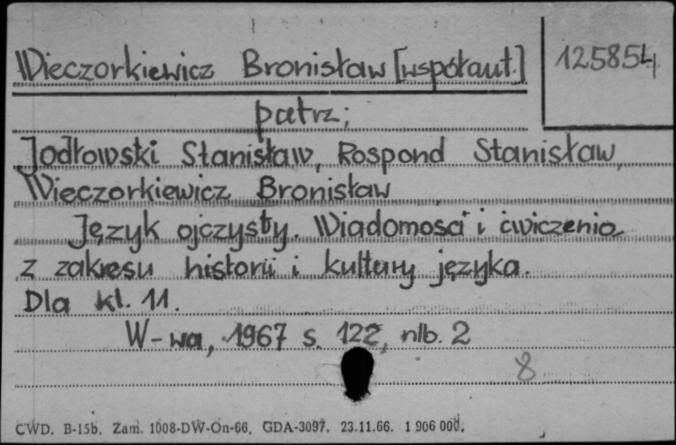 Wieczorkiewicz Bronisław [współaut.]
125854
patrz;
Jodłowski Stanisław, Rospond Stanisław,
Wieczorkiewicz Bronisław
Język ojczysty. Wiadomości i ćwiczenia
z zakresu historii i kultury języka.
Dla kl. 11.
W-wa, 1967 s. 122, nlb. 2
8
CWD. B-15b. Zam. 1008-DW-On-66. GDA-3097. 23.11.66. 1 906 000.